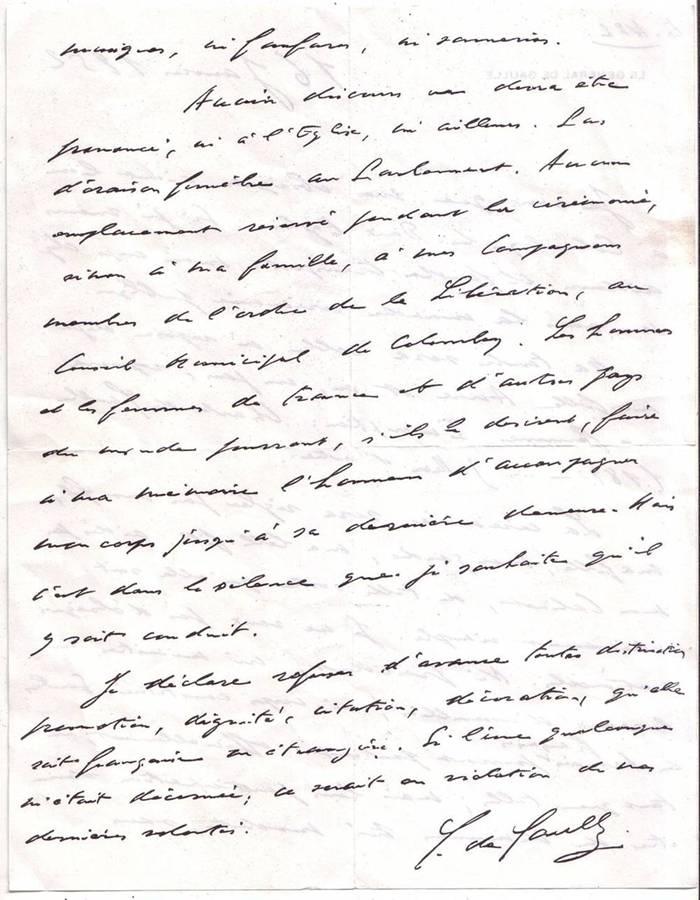 musiques, ni fanfares, ni sonneries.
Aucun discours ne devra être
prononcé, ni à l'Eglise, ni ailleurs. Pas
d'oraison funèbre au Parlement. Aucun
emplacement réservé pendant la cérémonie,
sinon à ma famille, à mes Compagnons
membres de l'ordre de la Libération, au
Conseil Municipal de Colombey. Les hommes
et les femmes de France et d'autres pays
du monde pourront, s'ils le désirent, faire
à ma mémoire l'honneur d'accompagner
mon corps jusqu'à sa dernière demeure. Mais
c'est dans le silence que je souhaite qu'il
y soit conduit.
Je déclare refuser d'avance toute distinction,
promotion, dignité, citation, décoration, qu'elle
soit française ou étrangère. Si l'une quelconque
m'était décernée, ce serait en violation de mes
dernières volontés.
C. de Gaulle.